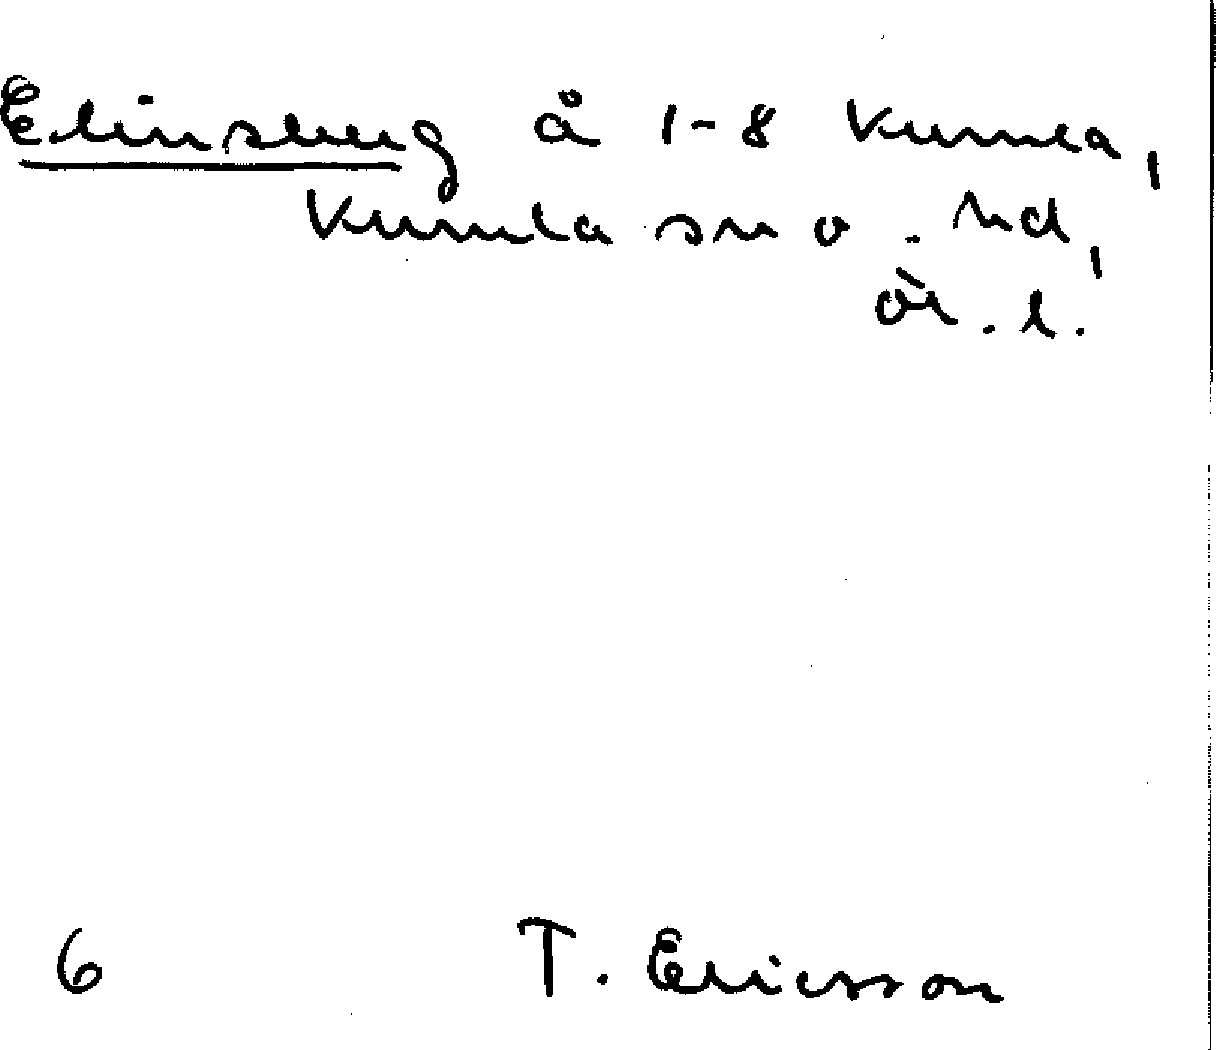 Elinsberg å 1-8 Kumla,
Kumla sn o. hd,
Ör. l.
6 T. Ericsson